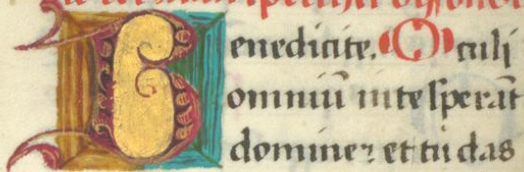 Benedicite. Oculi
omniū in te sperāt
domine⁊ et tu das